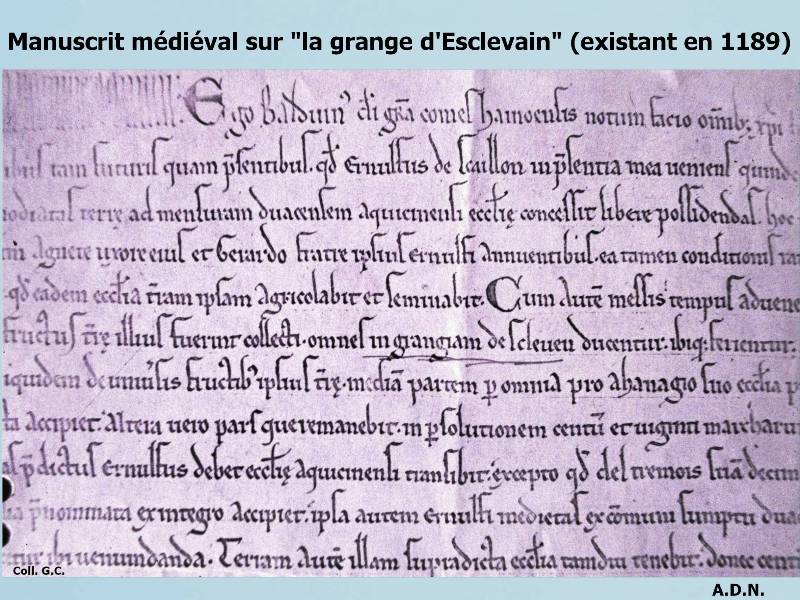 Manuscrit médiéval sur "la grange d'Esclevain" (existant en 1189)
Ego balduin' d̄i gr̄a comes hainoensis notum facio omīb; xp̄i
tam futuris quam p̄sentibus. qd̄ ernulfus de scaillon in p̄sentia mea veniens quinde
terrę ad mensuram duacensem aquicinensi ecclię concessit libere possidendas. hoc
Agnete uxore eius et Gerardo fratre ipsius ernulfi annuentibus. ea tamen conditionis
qd̄ eadem ecclīa t̄ram ipsam agricolabit et seminabit. Cum autē messis tempus advene
fructus t̄rę illius fuerint collecti. omnes in grangiam de scleven ducentur. ibiq; ferientur.
de univ̄sis fructib' ipsius t̄rę. mediā partem p omnia pro ahanagio suo ecclīa
accipiet. Altera vero pars que remanebit. in p solutionem centū et viginti marcharu
p̄dictus ernulfus debet ecclię aquicinensi transibit. excepto qd̄ del tremois
p̄nominata ex integro accipiet. ipsa autem ernulfi medietas ex cōmuni sumptu dua
ibi venumdanda. Terram autē illam supradicta ecclīa tamdiu tenebit. donec centi
Coll. G.C.
A.D.N.